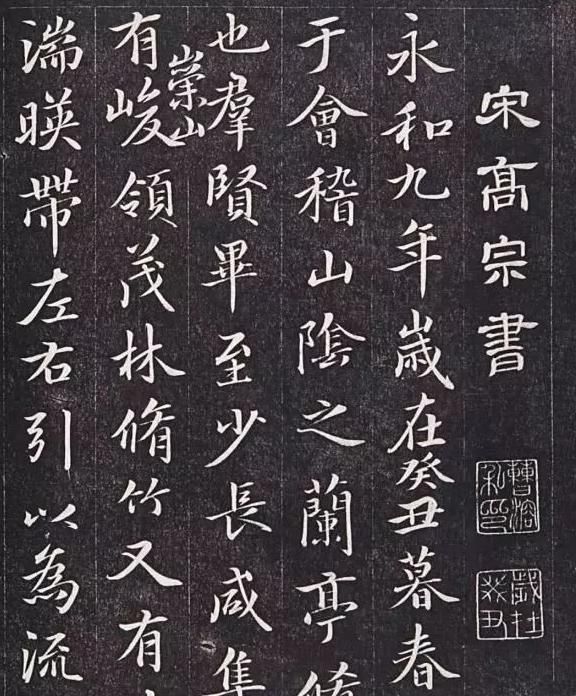 宋髙宗書
曹溶私印
歲在癸丑
永和九年歲在癸丑暮春
于會稽山陰之蘭亭脩
也羣賢畢至少長咸集
有崇山峻領茂林脩竹又有
湍暎帶左右引以為流